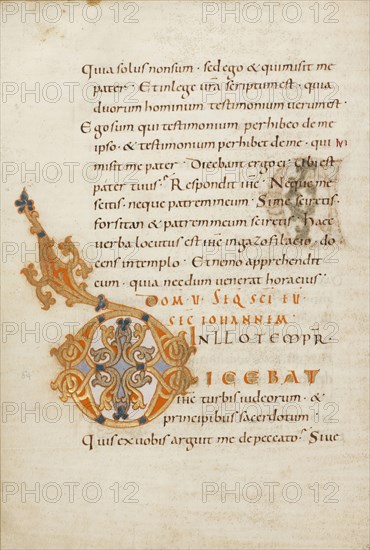 Quia solus non sum · sed ego & qui misit me
pater · Et in lege vr̄a scriptum est · quia
duorum hominum testimonium verum est ·
Ego sum qui testimonium perhibeo de me
ipso · & testimonium perhibet de me · qui
misit me pater · Dicebant ergo ei · Ubi est
pater tuus · Respondit ih̄c · Neque me
scitis · neque patrem meum · Si me sciretis ·
forsitan & patrem meum sciretis · Haec
verba locutus est ih̄c in gazofilacio · do
cens in templo · Et nemo apprehendit
eum · quia necdum venerat hora eius ·
DOM · V · SEQ SCI EU
SEC IOHANNEM ·
IN ILLO TEMPR̄
DICEBAT
ih̄c turbis iudeorum · &
principibus sacerdotum ·
Quis ex vobis arguit me de peccato · Si ve
PHOTO 12